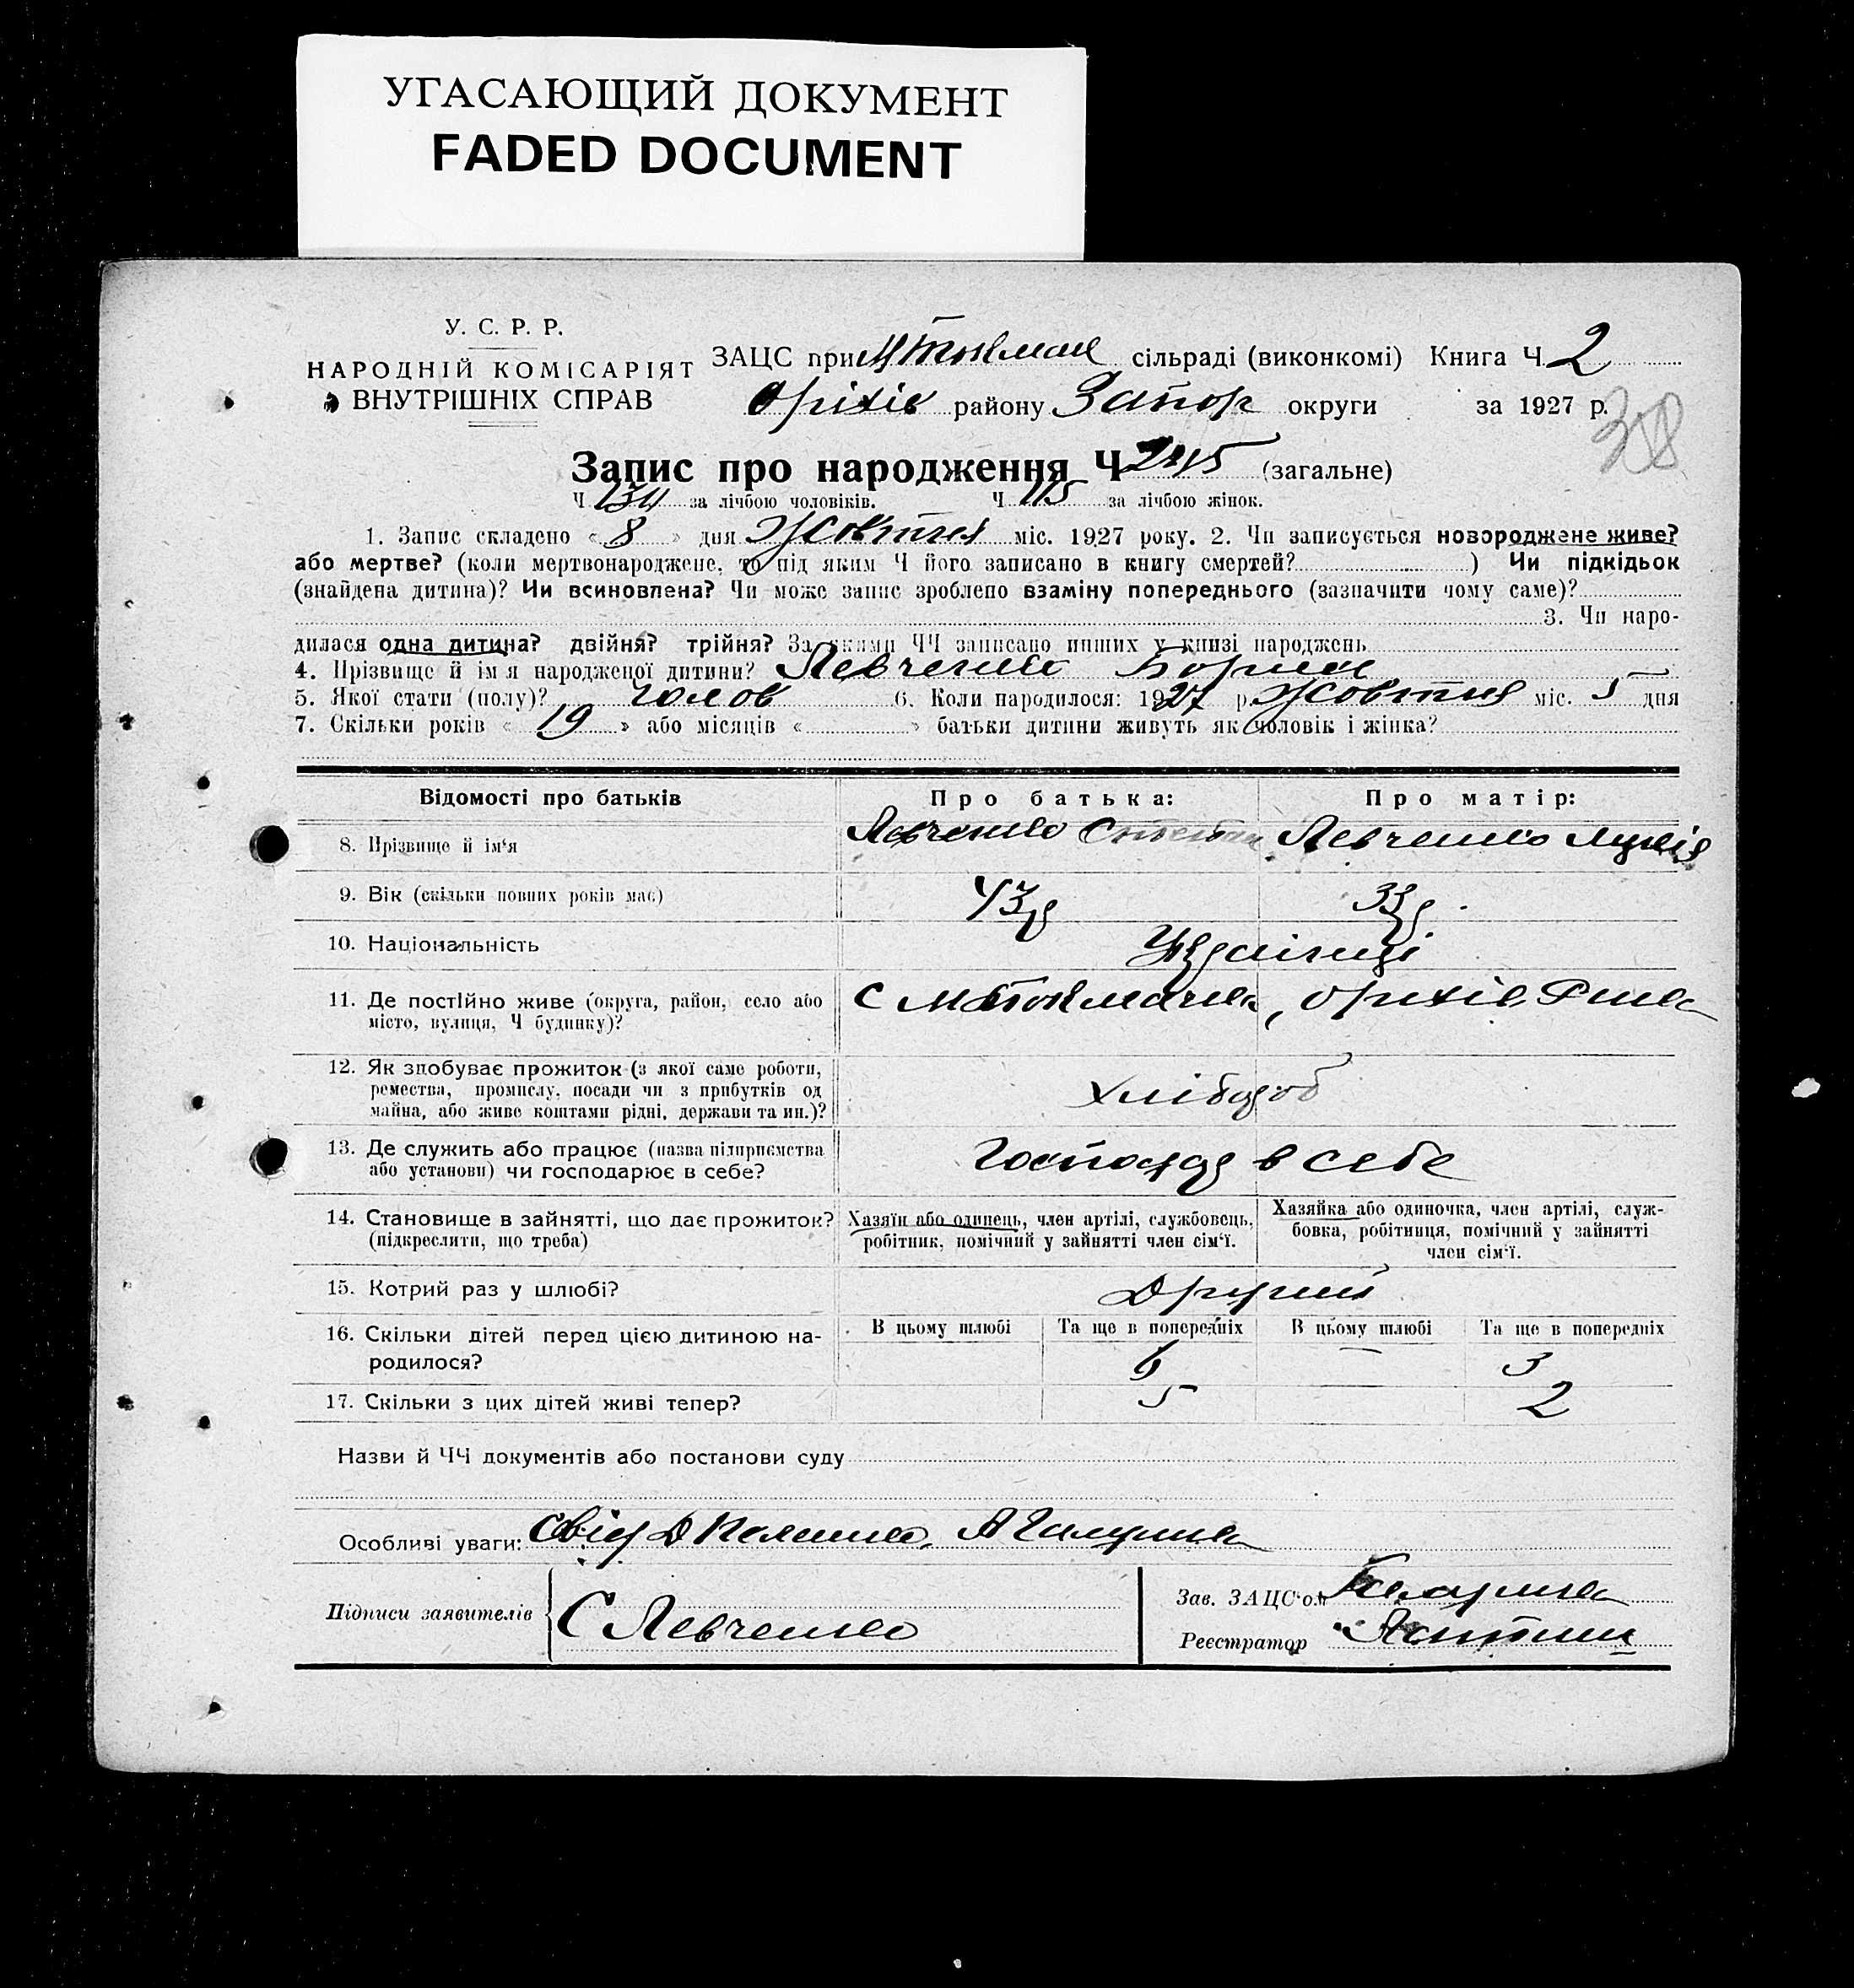 УГАСАЮЩИЙ ДОКУМЕНТ
FADED DOCUMENT
У. С. Р. Р.
НАРОДНІЙ КОМІСАРІЯТ
ВНУТРІШНІХ СПРАВ
ЗАЦС при М Токмац сільраді (виконкомі) Книга Ч. 2
Оріхів району Запор округи за 1927 р.
Запис про народження Ч 245 (загальне)
Ч 134 за лічбою чоловіків. Ч 115 за лічбою жінок.
1. Запис складено « 8 » дня Жовтня міс. 1927 року. 2. Чи записується новороджене живе?
або мертве? (коли мертвонароджене, то під яким Ч його записано в книгу смертей? ) Чи підкідьок
(знайдена дитина)? Чи всиновлена? Чи може запис зроблено взаміну попереднього (зазначити чому саме)?
3. Чи наро-
дилася одна дитина? двійня? трійня? За якими ЧЧ записано инших у книзі народжень
4. Прізвище й ім'я народженої дитини? Левченко Борис
5. Якої стати (полу)? чолов 6. Коли народилося: 1927 р. Жовтня міс. 5 дня
7. Скільки років « 19 » або місяців « » батьки дитини живуть як чоловік і жінка?
Відомості про батьків Про батька: Про матір:
8. Прізвище й ім'я Левченко Степан Левченко
9. Вік (скільки повних років має) 43 р 33 р.
10. Національність Українці
11. Де постійно живе (округа, район, село або С М Токмачка, Оріхів
місто, вулиця, Ч будинку)?
12. Як здобуває прожиток (з якої саме роботи,
ремества, промислу, посади чи з прибутків од Хлібороб
майна, або живе коштами рідні, держави та ин.)?
13. Де служить або працює (назва підприємства Господар в себе
або установи) чи господарює в себе?
14. Становище в зайнятті, що дає прожиток? Хазяїн або одинець, член артілі, службовець, Хазяйка або одиночка, член артілі, служ-
(підкреслити, що треба) робітник, помічний у зайнятті член сім'ї. бовка, робітниця, помічний у зайнятті
член сім'ї.
15. Котрий раз у шлюбі? Другий
16. Скільки дітей перед цією дитиною на- В цьому шлюбі Та ще в попередніх В цьому шлюбі Та ще в попередніх
родилося? 6 — 3
17. Скільки з цих дітей живі тепер? 5 2
Назви й ЧЧ документів або постанови суду
Особливі уваги: Свід Д
Підписи заявителів С Левченко Зав. ЗАЦС'ом
Реєстратор